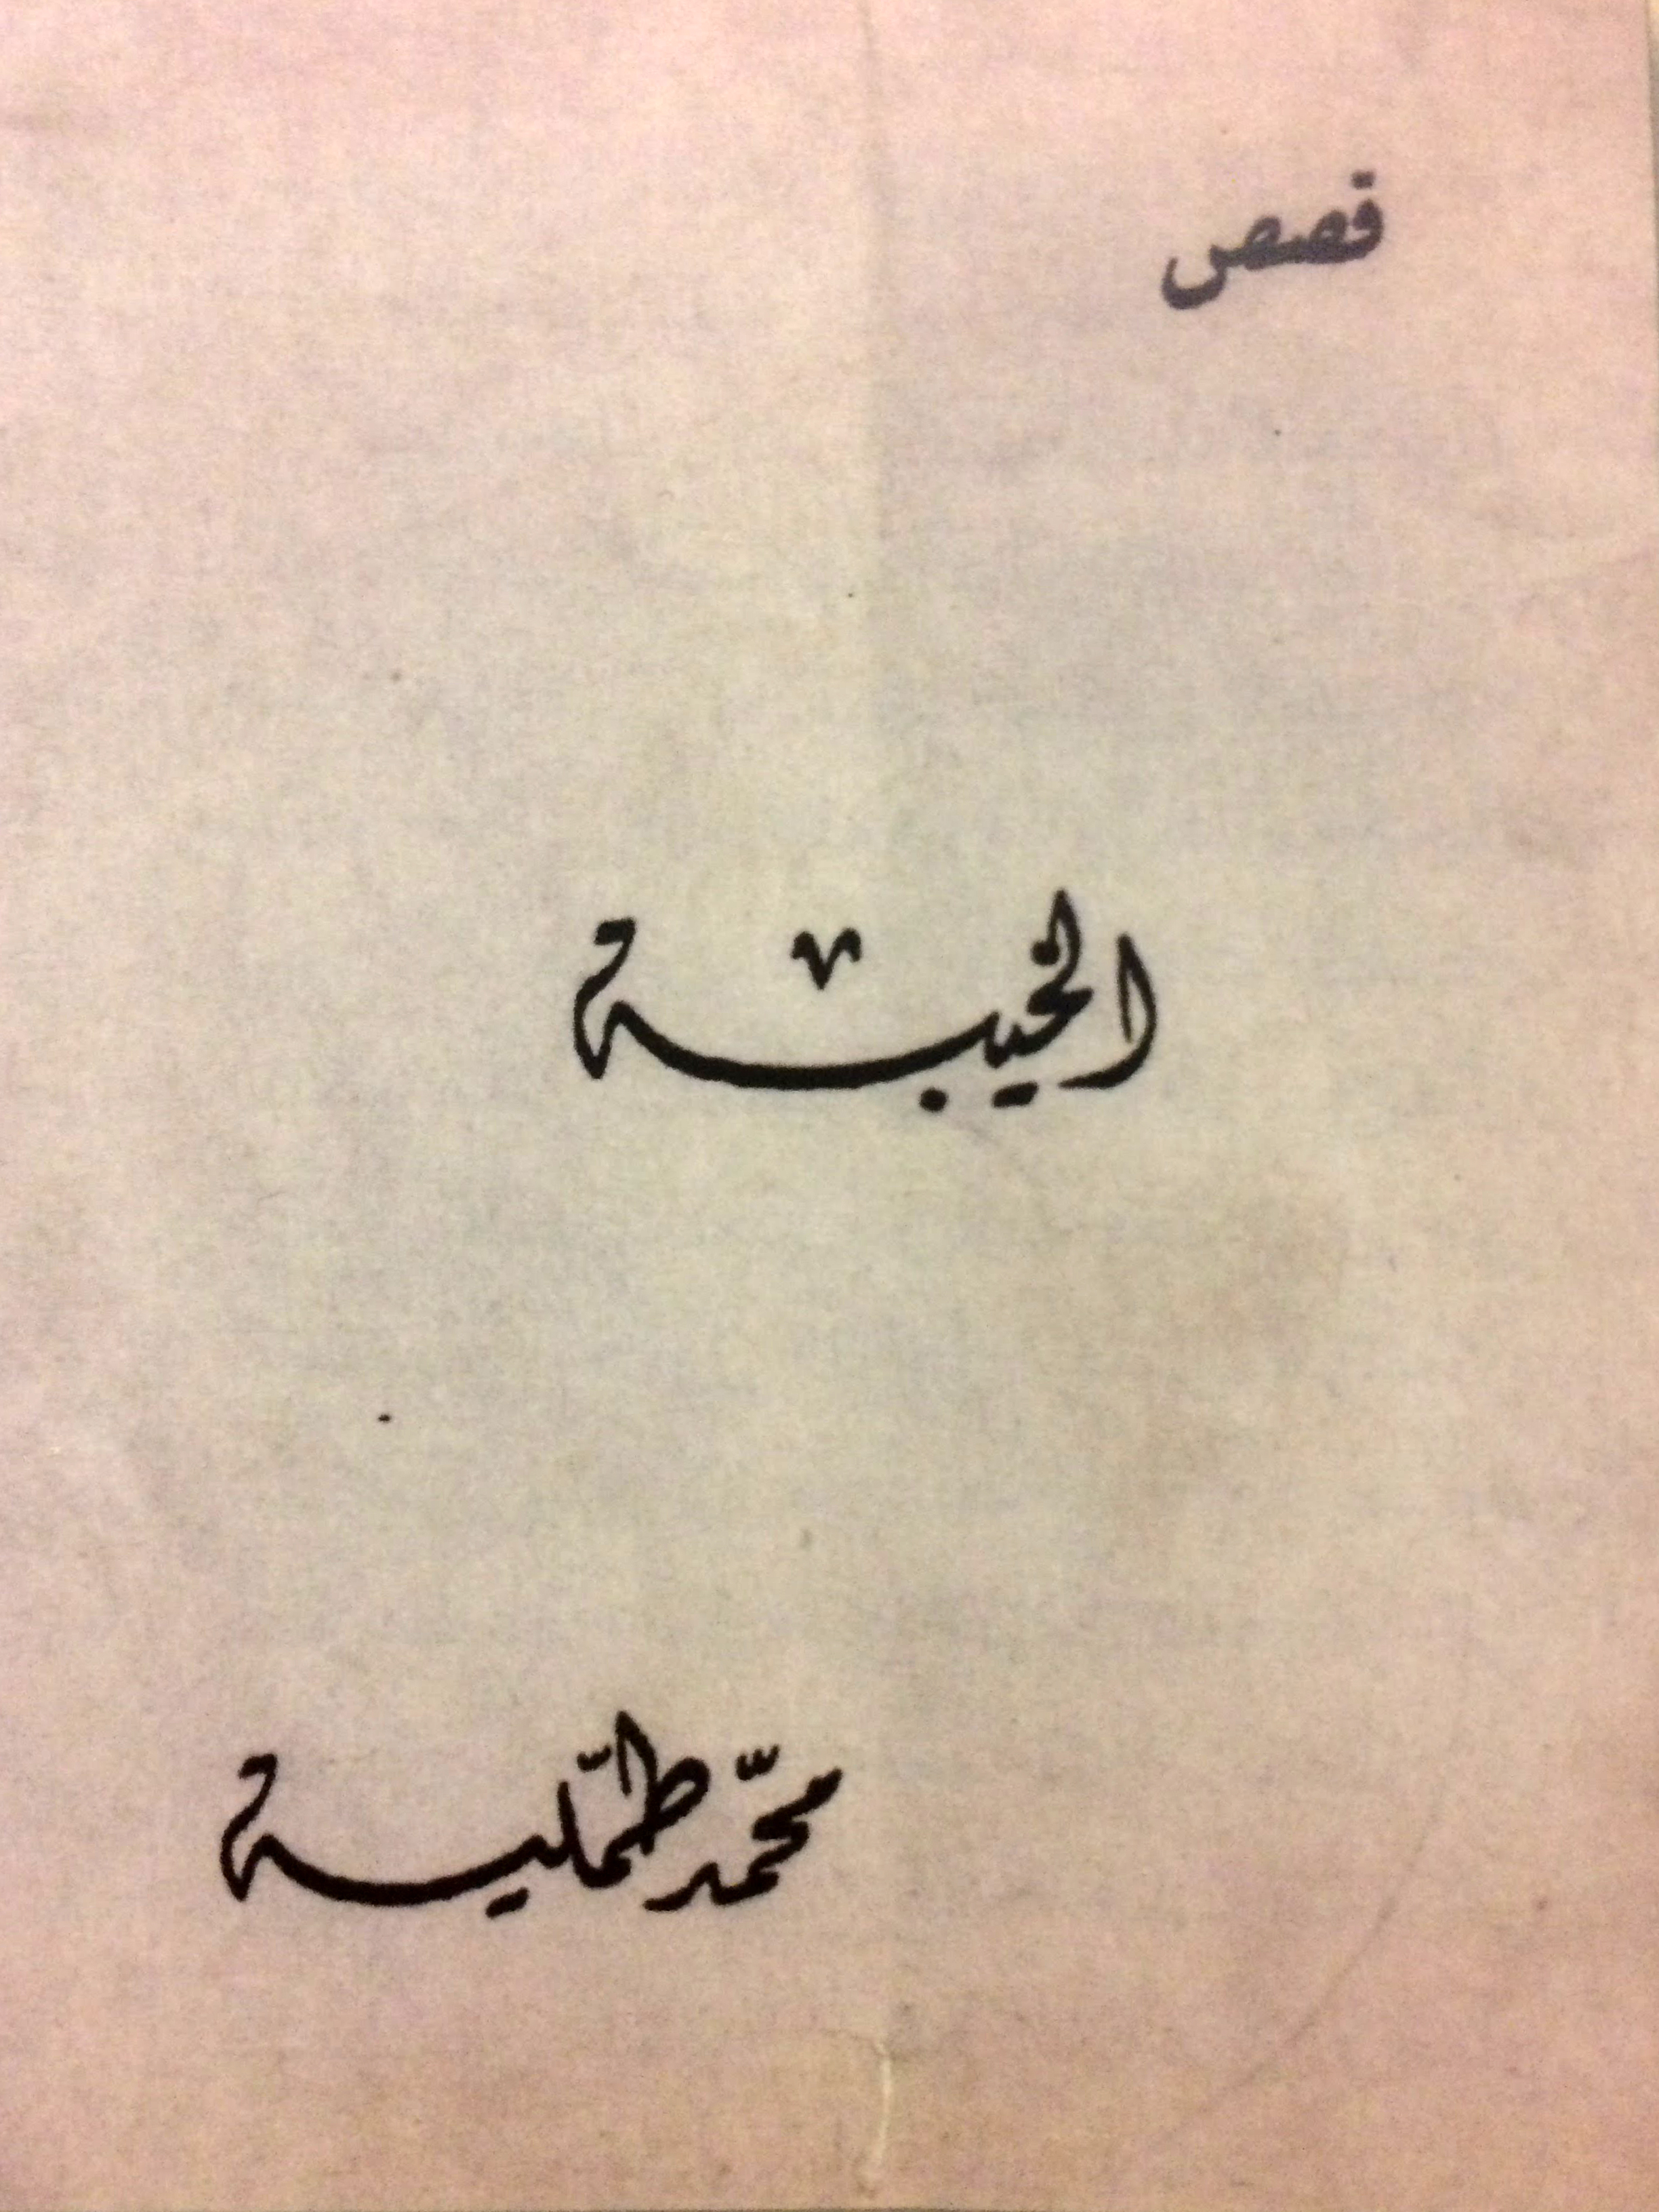 قصص
الخيبة
محمّد طمّلية